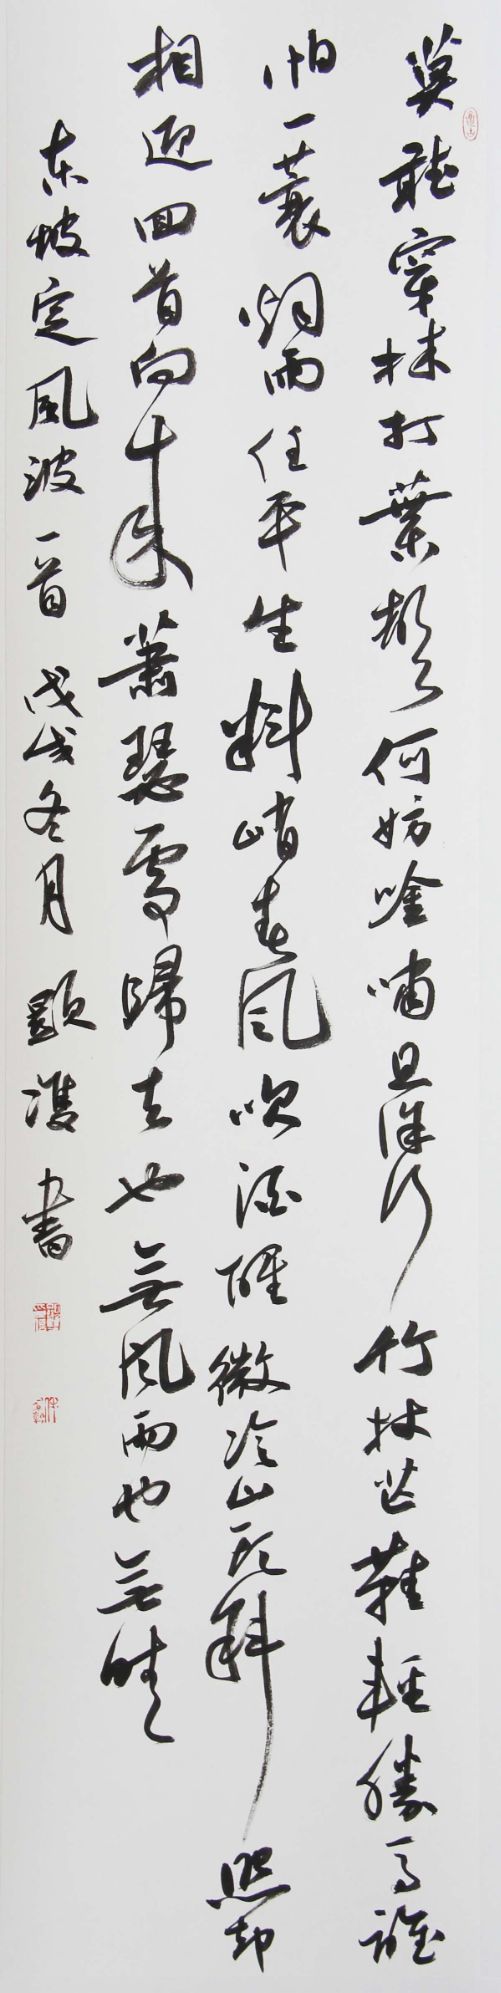 莫聽穿林打葉聲何妨唫嘯且徐行竹杖芒鞋輕勝馬誰
怕一蓑烟雨任平生料峭春風吹酒醒微冷山頭斜照却
相迎回首向來蕭瑟處歸去也無風雨也無晴
東坡定風波一首 戊戌冬月 書